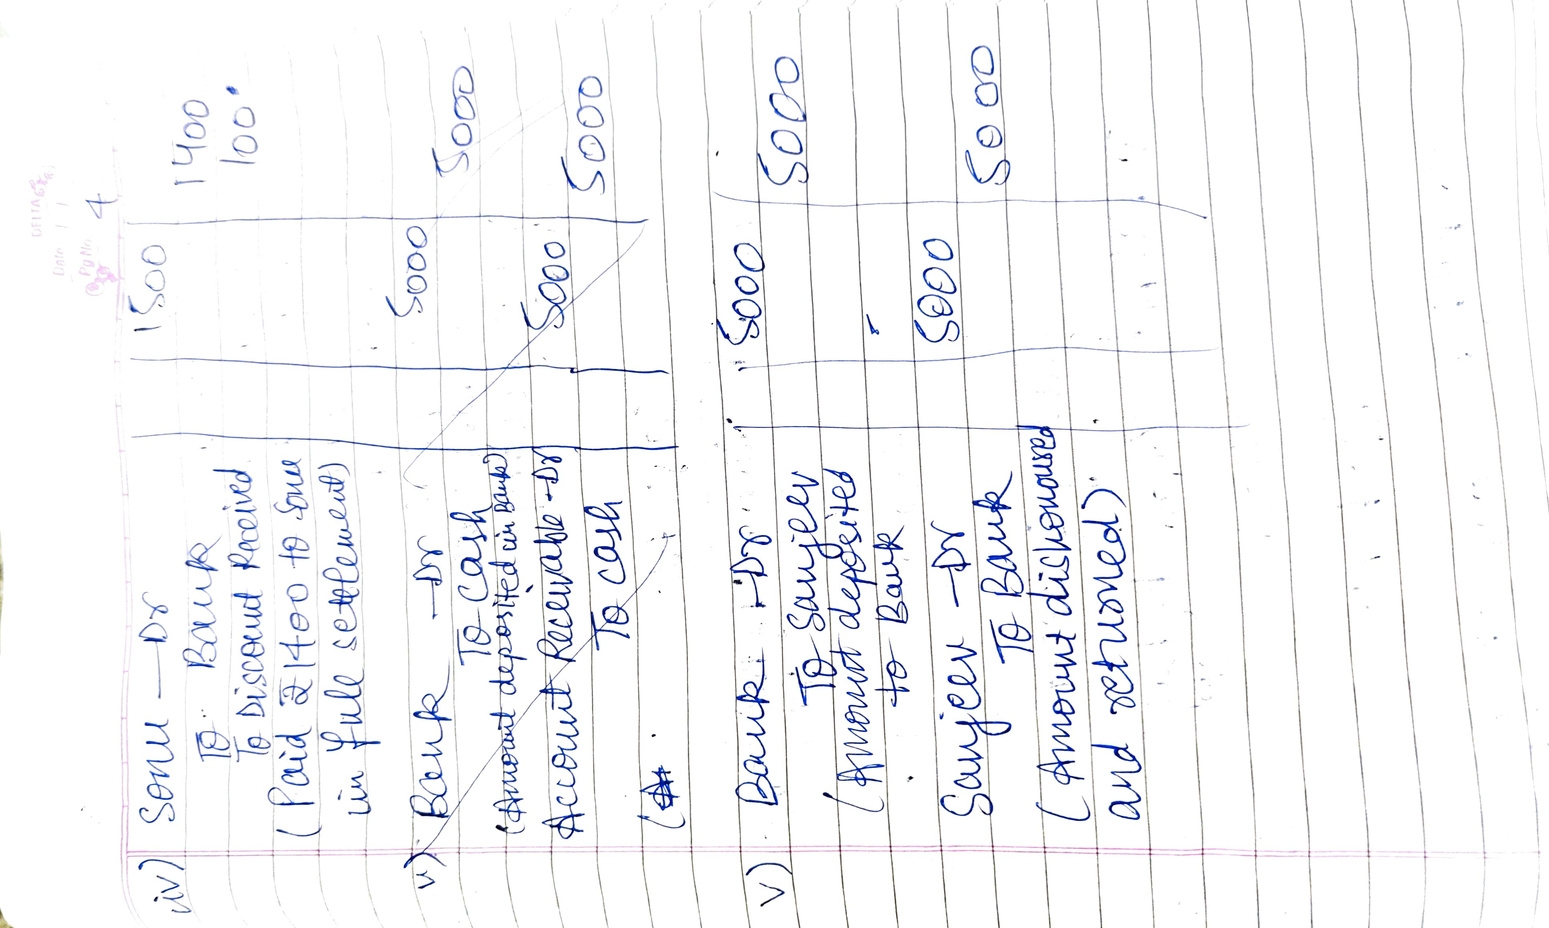 DELTA
Date / /
Pg No. 4
iv) Sonu — Dr 1500
To Bank 1400
To Discount Received 100
( Paid ₹ 1400 to Sonu
in full settlement)
v) Bank — Dr 5000
To Cash 5000
(Amount deposited in Bank)
Account Receivable - Dr 5000
To cash 5000
(
v) Bank - Dr 5000
To Sanjeev 5000
(Amount deposited
to Bank
Sanjeev - Dr 5000
To Bank 5000
( Amount dishonoured
and returned)